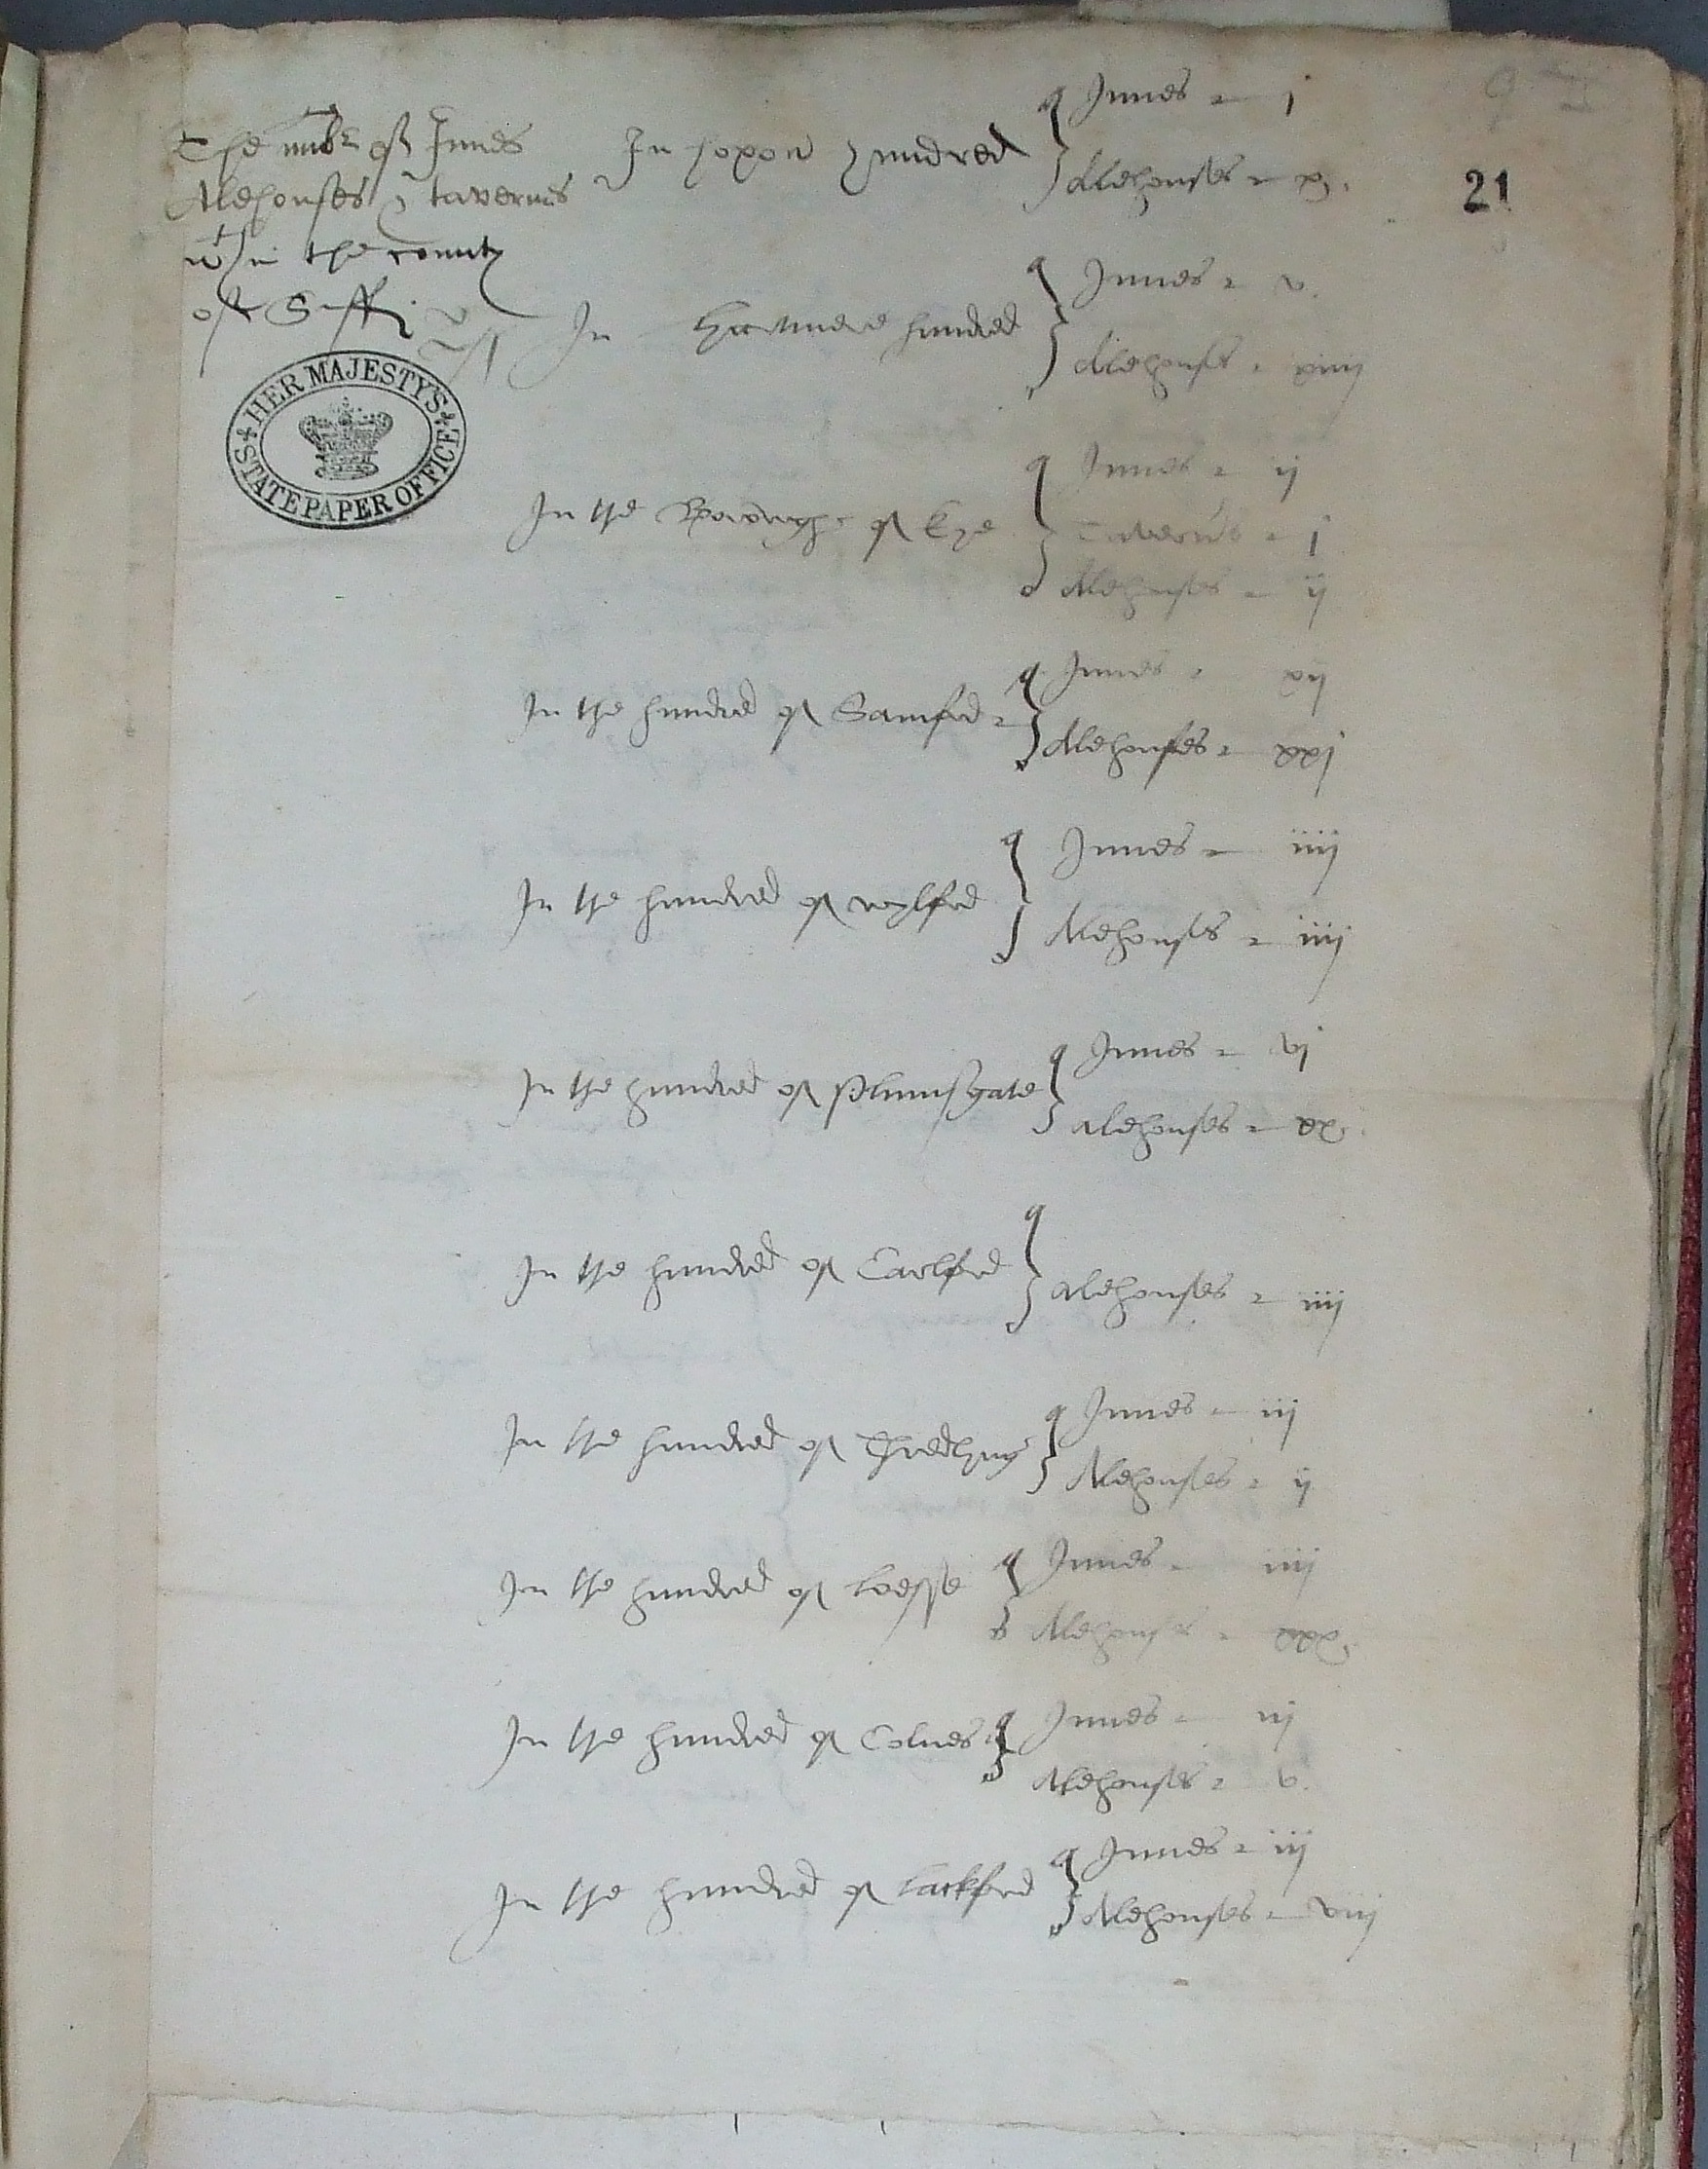 The nūbr of Innes
Alehouses & taverns
wt in the county
of Suff
HER MAJESTY'S STATE PAPER OFFICE
21
In hoxon hundred
Innes - j
Alehouses - x.
In hartmere hundred
Innes - v.
Alehouses - xiiij
In the Borough of Eye
Innes - ij
Taverns - j
Alehouses - ij
In the hundred of Samford -
Innes - xij
Alehouses - xxj
In the hundred of wylford
Innes - iiij
Alehouses - iiij
In the hundred of Plumsgate
Innes - vj
Alehouses - xx.
In the hundred of Carlford
Alehouses - iiij
In the hundred of Thredlyng
Innes - iij
Alehouses - ij
In the hundred of Loesse
Innes - iiij
Alehouses - xxx.
In the hundred of Colnes
Innes - iij
Alehouses - v.
In the hundred of Lackford
Innes - iij
Alehouses - viij